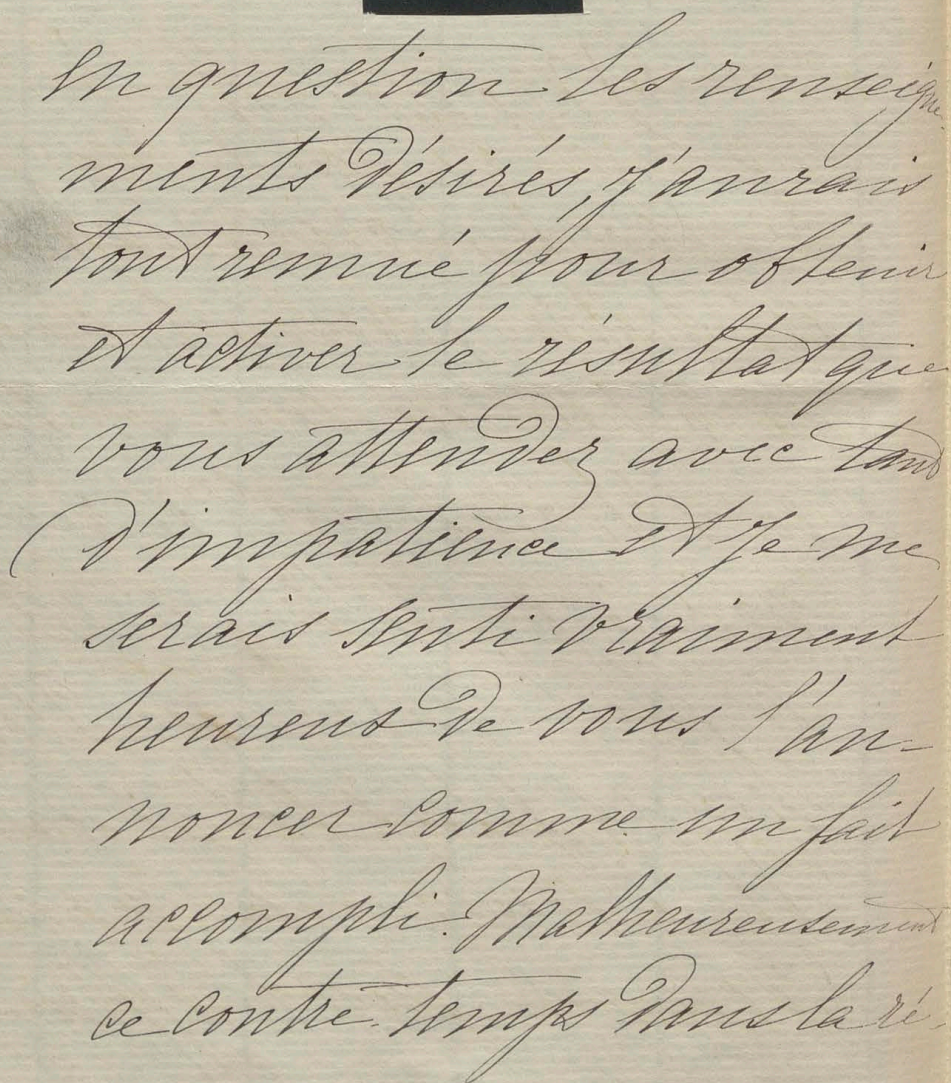 en question les renseigne-
ments désirés, j'aurais
tout remué pour obtenir
et activer le résultat que
vous attendez avec tant
d'impatience et je me
serais senti vraiment
heureux de vous l'an-
noncer comme un fait
accompli. Malheureusement
ce contre-temps dans la ré-